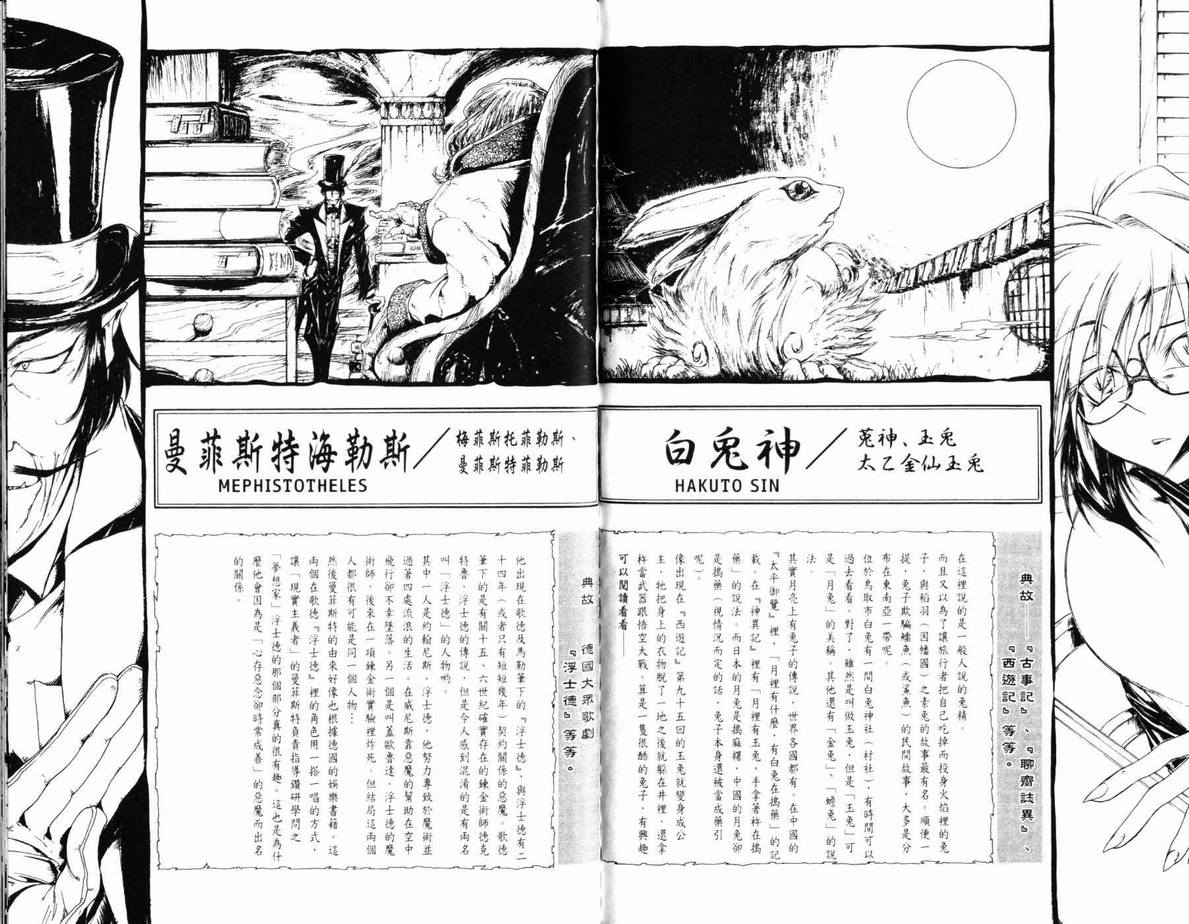 白兎神／
HAKUTO SIN
兎神、玉兔
太乙金仙玉兔
典故——『古事記』、『聊齋誌異』、
『西遊記』等等。
在這裡說的是一般人說的兔精。
而且又以為了讓旅行者把自己吃掉而投身火焰裡的兔
子，與稻羽（因幡國）之素兔的故事最有名。順便一
提，兔子欺騙鱷魚（或鯊魚）的民間故事，大多是分
布在東南亞一帶呢。
位於鳥取市白兔有一間白兔神社（村社），有時間可以
過去看看。對了，雖然是叫做玉兔，但是「玉兔」可
是「月兔」的美稱。其他還有「金兔」、「蟾兔」的說
法。
其實月亮上有兔子的傳說，世界各國都有。在中國的
『太平御覽』裡，「月裡有什麼，有白兔在搗藥」的記
載。在『神異記』裡有「月裡有玉兔，手拿著杵在搗
藥」的說法。而日本的月兔是搗麻糬，中國的月兔卻
是搗藥（視情況而定的話，兔子本身還被當成藥引
呢）。
像出現在『西遊記』第九十五回的玉兔就變身成公
主，牠把身上的衣物脫了一地之後就躲在井裡，還拿
杵當武器跟悟空大戰。算是一隻很酷的兔子，有興趣
可以閱讀看看——
曼菲斯特海勒斯／
MEPHISTOTHELES
梅菲斯托菲勒斯、
曼菲斯特菲勒斯
典故——德國大眾歌劇
『浮士德』等等。
他出現在歌德及馬勒筆下的『浮士德』，與浮士德有二
十四年（或者只有短短幾年）契約關係的惡魔。歌德
筆下的是有關十五、六世紀確實存在的鍊金術師德克
特魯．浮士德的傳說，但是令人感到混淆的是有兩名
叫「浮士德」的人物喲。
其中一人是約翰尼斯．浮士德，他努力專致於魔術並
過著四處流浪的生活。在威尼斯靠惡魔的幫助在空中
飛行卻不幸墜落。另一個是叫蓋歐魯達．浮士德的魔
術師，後來在一項鍊金術實驗裡炸死。但結局這兩個
人都很有可能是同一個人物…
然後曼菲斯特的由來好像也根據德國的娛樂書籍。這
兩個在歌德『浮士德』裡的角色用一搭一唱的方式，
讓「現實主義者」的曼菲斯特負責指導鑽研學問之
「夢想家」浮士德的那個部分真的很有趣。這也是為什
麼他會因為是「心存惡念卻時常成善」的惡魔而出名
的關係。